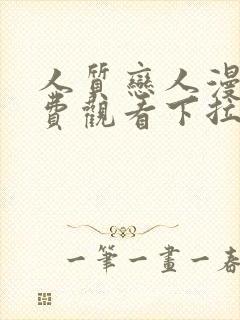 人質戀人漫
費觀看下拉
一筆一畫一春